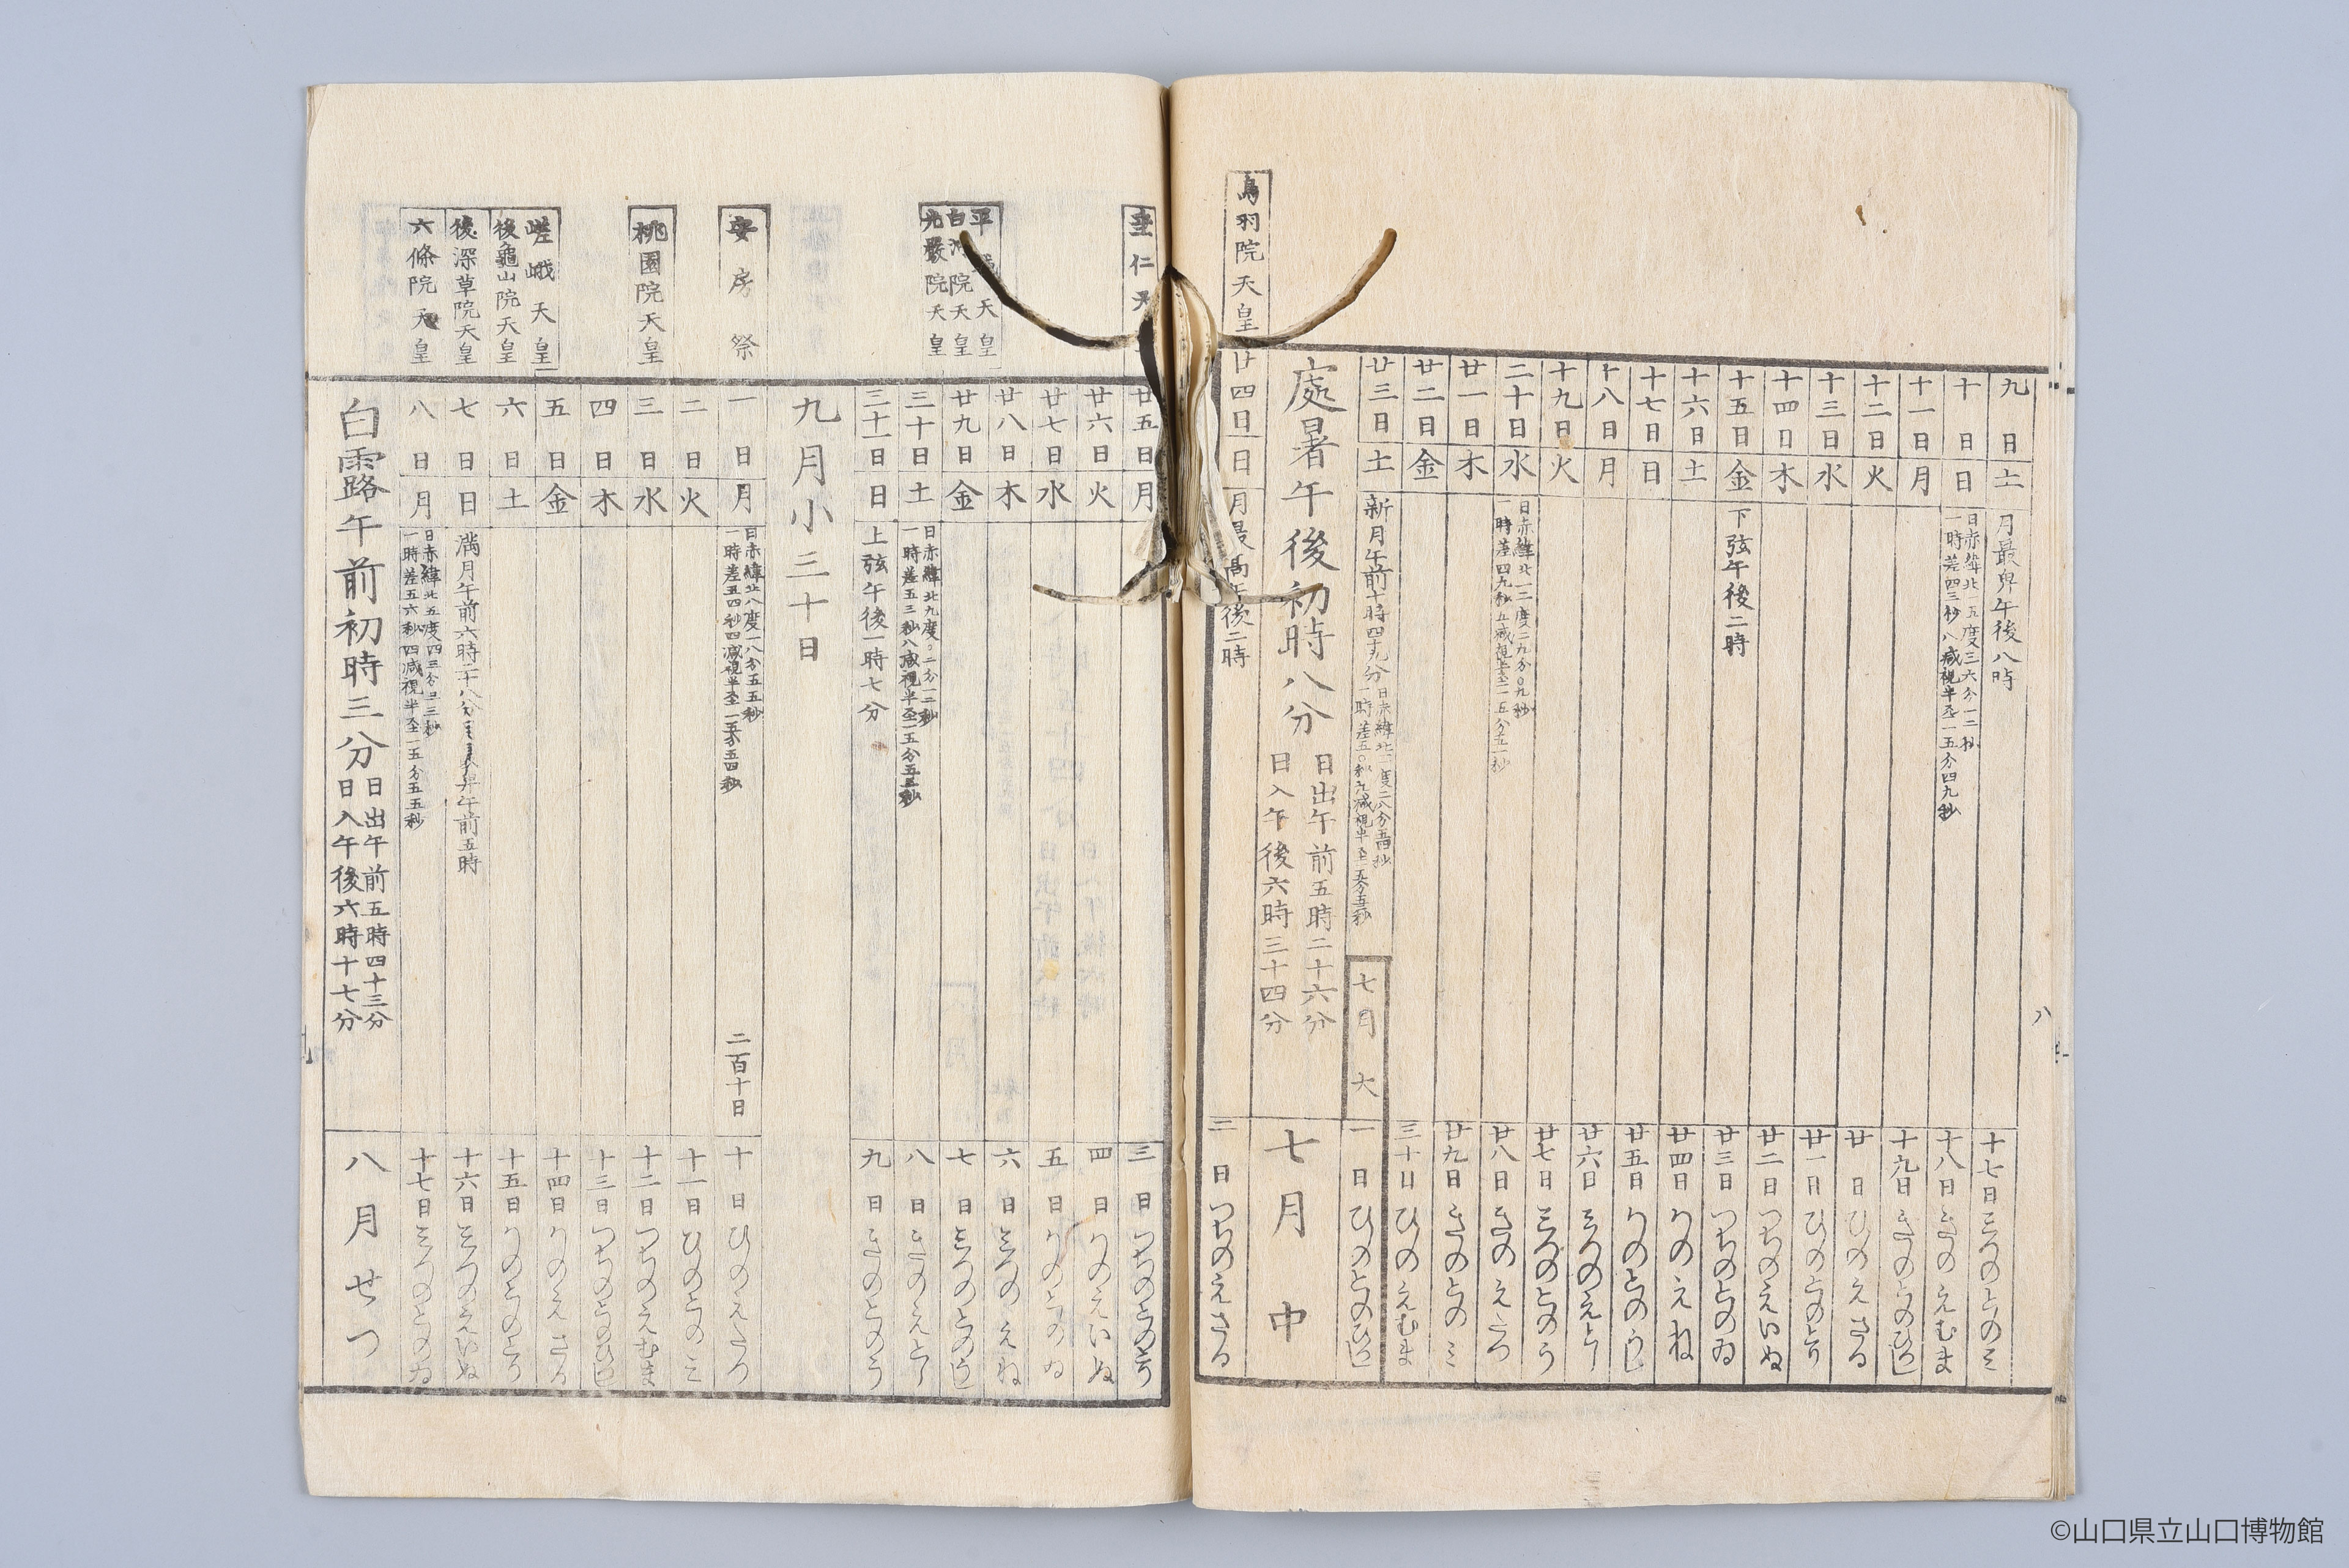 九日土月最卑午後八時十七日
十日日日赤緯北一五度三六分一二秒
一時差四三秒八減視半至一五分四九秒十八日
十一日月十九日
十二日火廿日
十三日水廿一日
十四日木廿二日
十五日金下弦午後二時廿三日
十六日土廿四日
十七日日廿五日
十八日月廿六日
十九日火廿七日
二十日水日赤緯北一二度二九分〇九秒
一時差四九秒五減視半至一五分五一秒廿八日
廿一日木廿九日
廿二日金三十日ひのえむま
廿三日土新月午前十時四十九分
七月大一日ひのとのひつし
處暑午後初時八分
日出午前五時二十六分
日入午後六時三十四分
七月中
鳥羽院天皇
廿四日日月最高午後二時二日つちのえさる
八
垂仁天
廿五日月三日つちのとのとり
廿六日火四日かのえいぬ
廿七日水五日かのとのゐ
廿八日木六日みつのえね
平天皇
白河院天皇
光嚴院天皇
廿九日金七日みつのとのうし
三十日土日赤緯北九度〇二分一二秒
一時差五三秒八減視半至一五分五三秒八日きのえとら
三十一日日上弦午後一時七分九日きのとのう
九月小三十日
安房祭
一日月日赤緯北八度一八分五五秒
一時差五四秒四減視半至一五分五四秒
二百十日十日ひのえたつ
二日火十一日ひのとのミ
桃園院天皇
三日水十二日つちのえむま
四日木十三日つちのとのひつし
嵯峨天皇
五日金十四日かのえさる
後龜山院天皇
六日土十五日かのとのとり
後深草院天皇
七日日滿月午前六時二十八分午前五時十六日みつのえいぬ
六條院天皇
八日月日赤緯北五度四三分三三秒
一時差五六秒四減視半至一五分五五秒十七日みつのとのゐ
白露午前初時三分
日出午前五時四十三分
日入午後六時十七分
八月せつ
©山口県立山口博物館